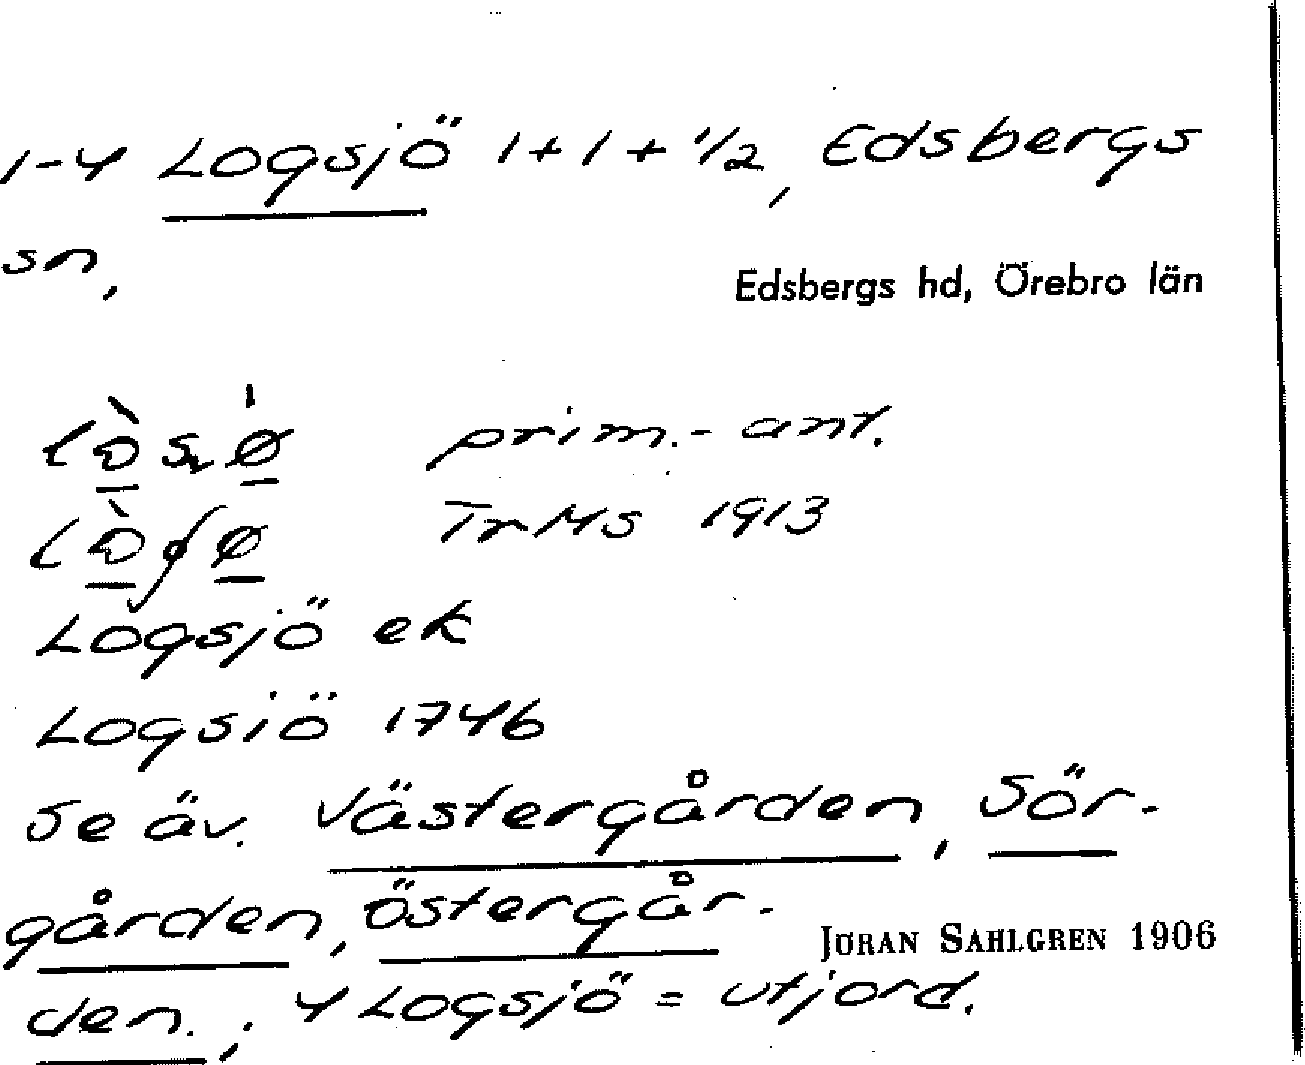 1-4 Logsjö 1+1+1/2, Edsbergs
sn,
Edsbergs hd, Örebro län
prim.- ant.
TrMs 1913
Logsjö ek
Logsiö 1746
Se äv. Västergården, Sör-
gården, Östergår-
JÖRAN SAHLGREN 1906
den.; 4 Logsjö = utjord.